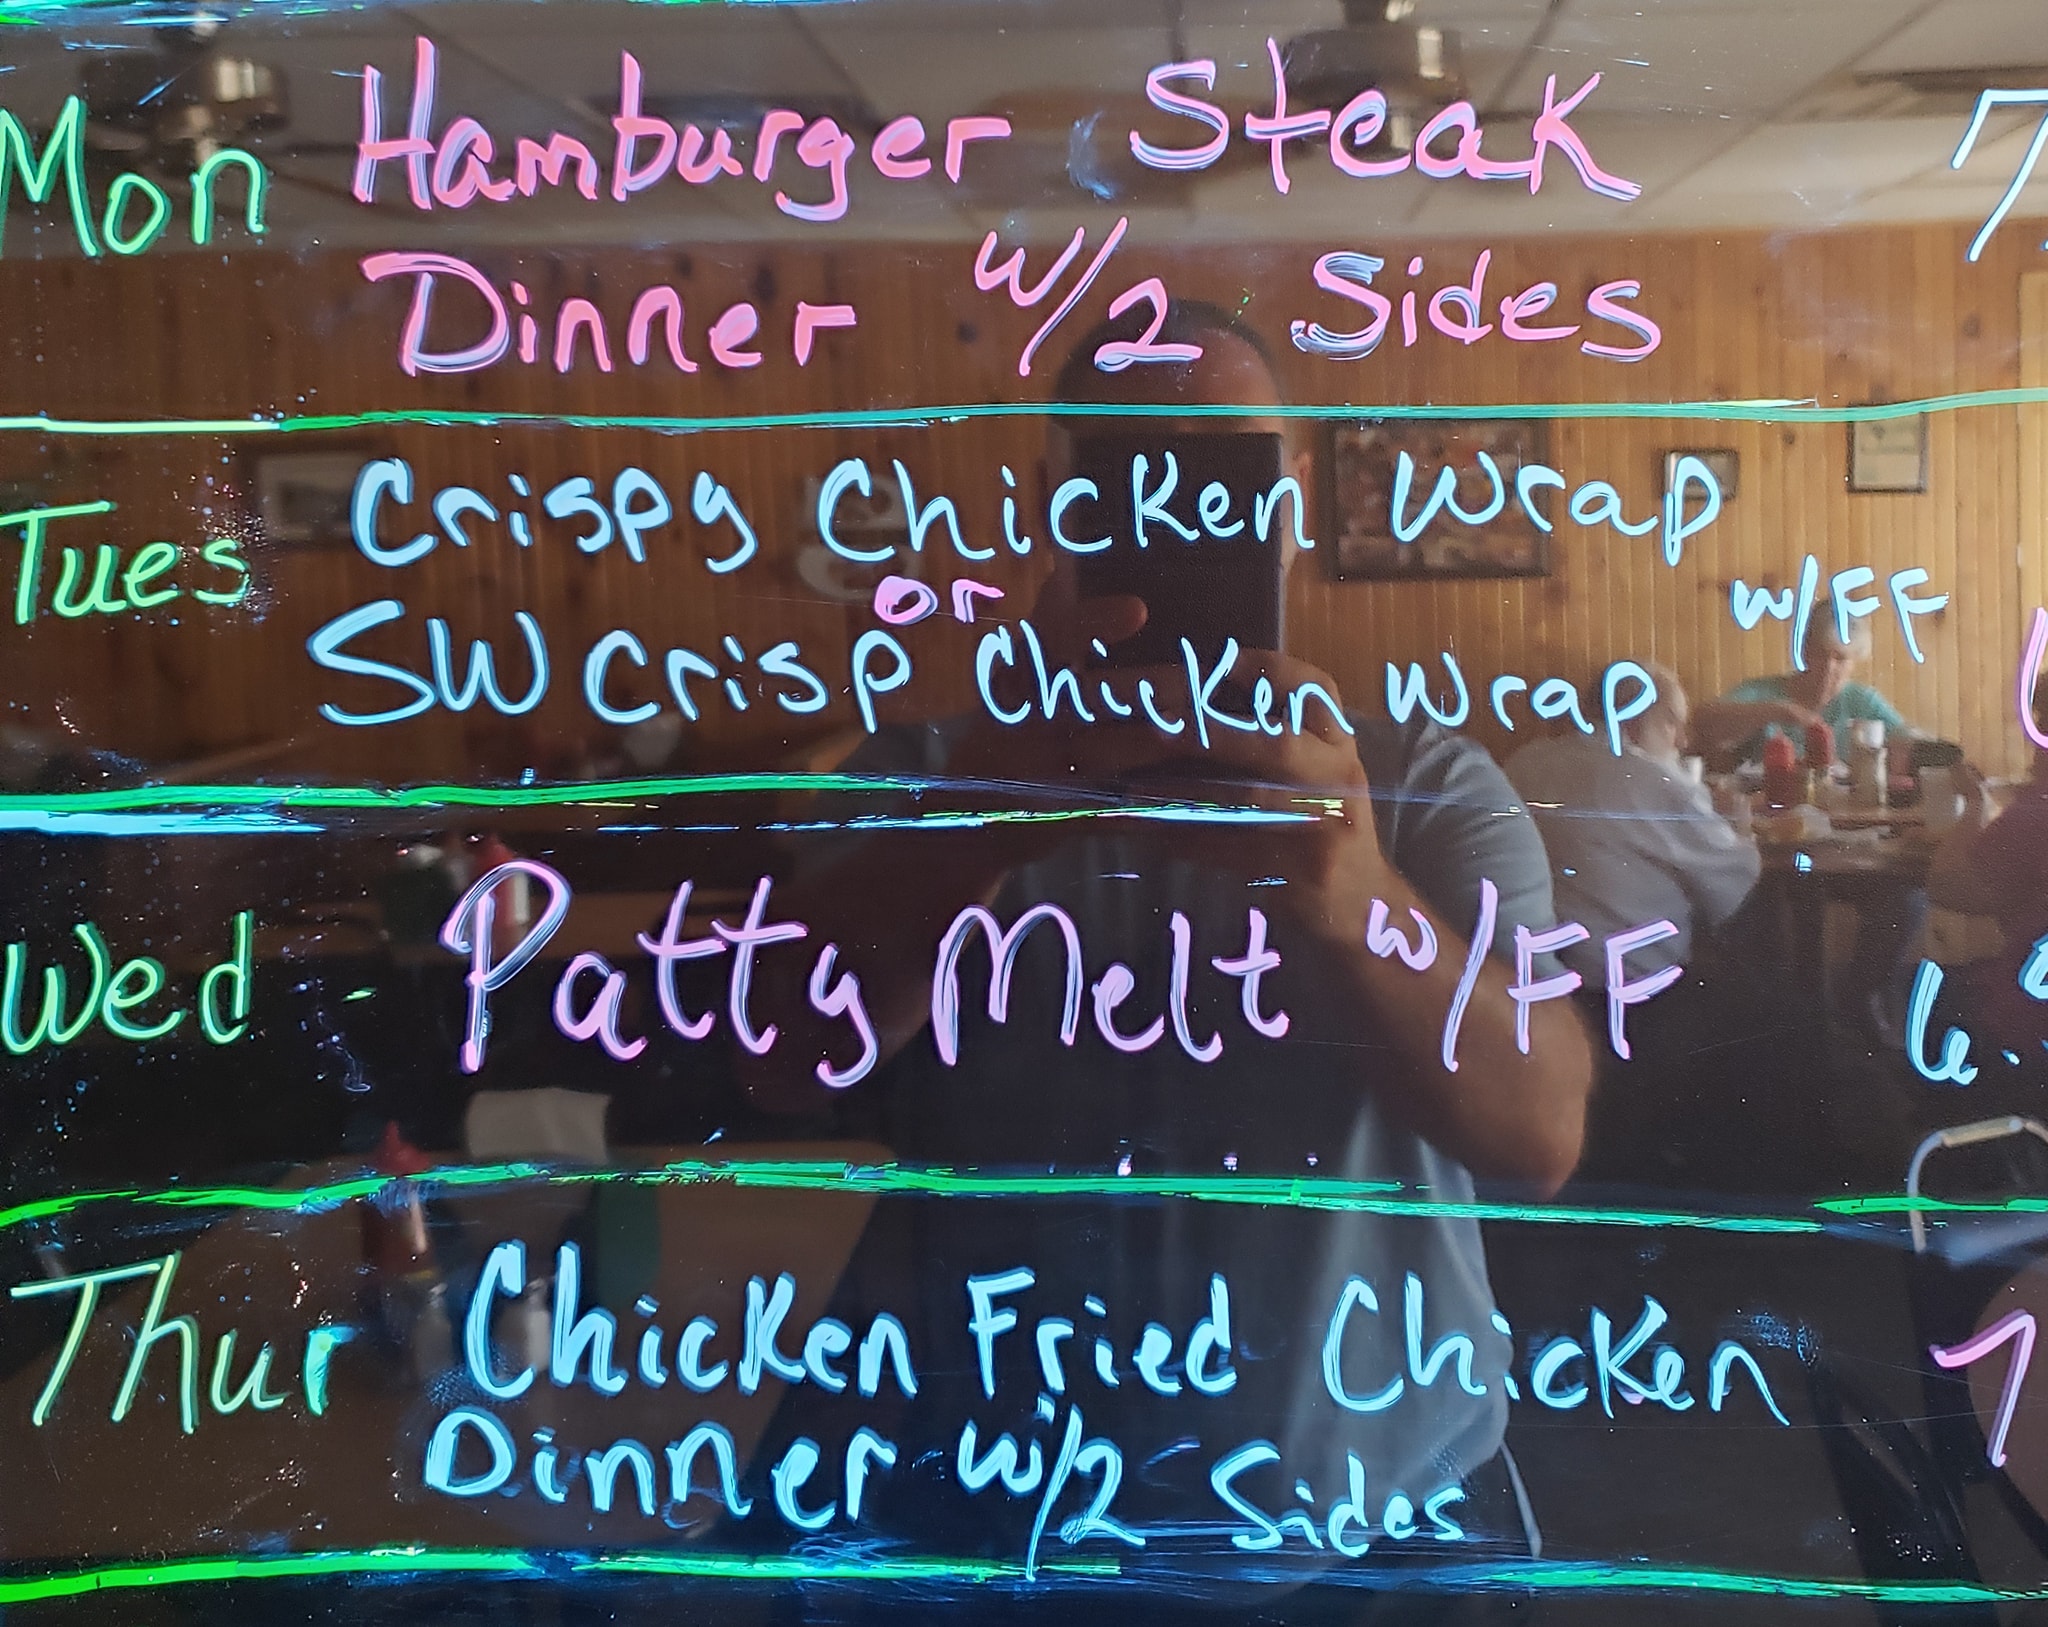 Mon Hamburger Steak 7.
Dinner w/2 Sides
Tues Crispy Chicken Wrap
or w/FF
SW Crisp Chicken Wrap
Wed Patty Melt w/FF 6.
Thur Chicken Fried Chicken 7
Dinner w/2 Sides